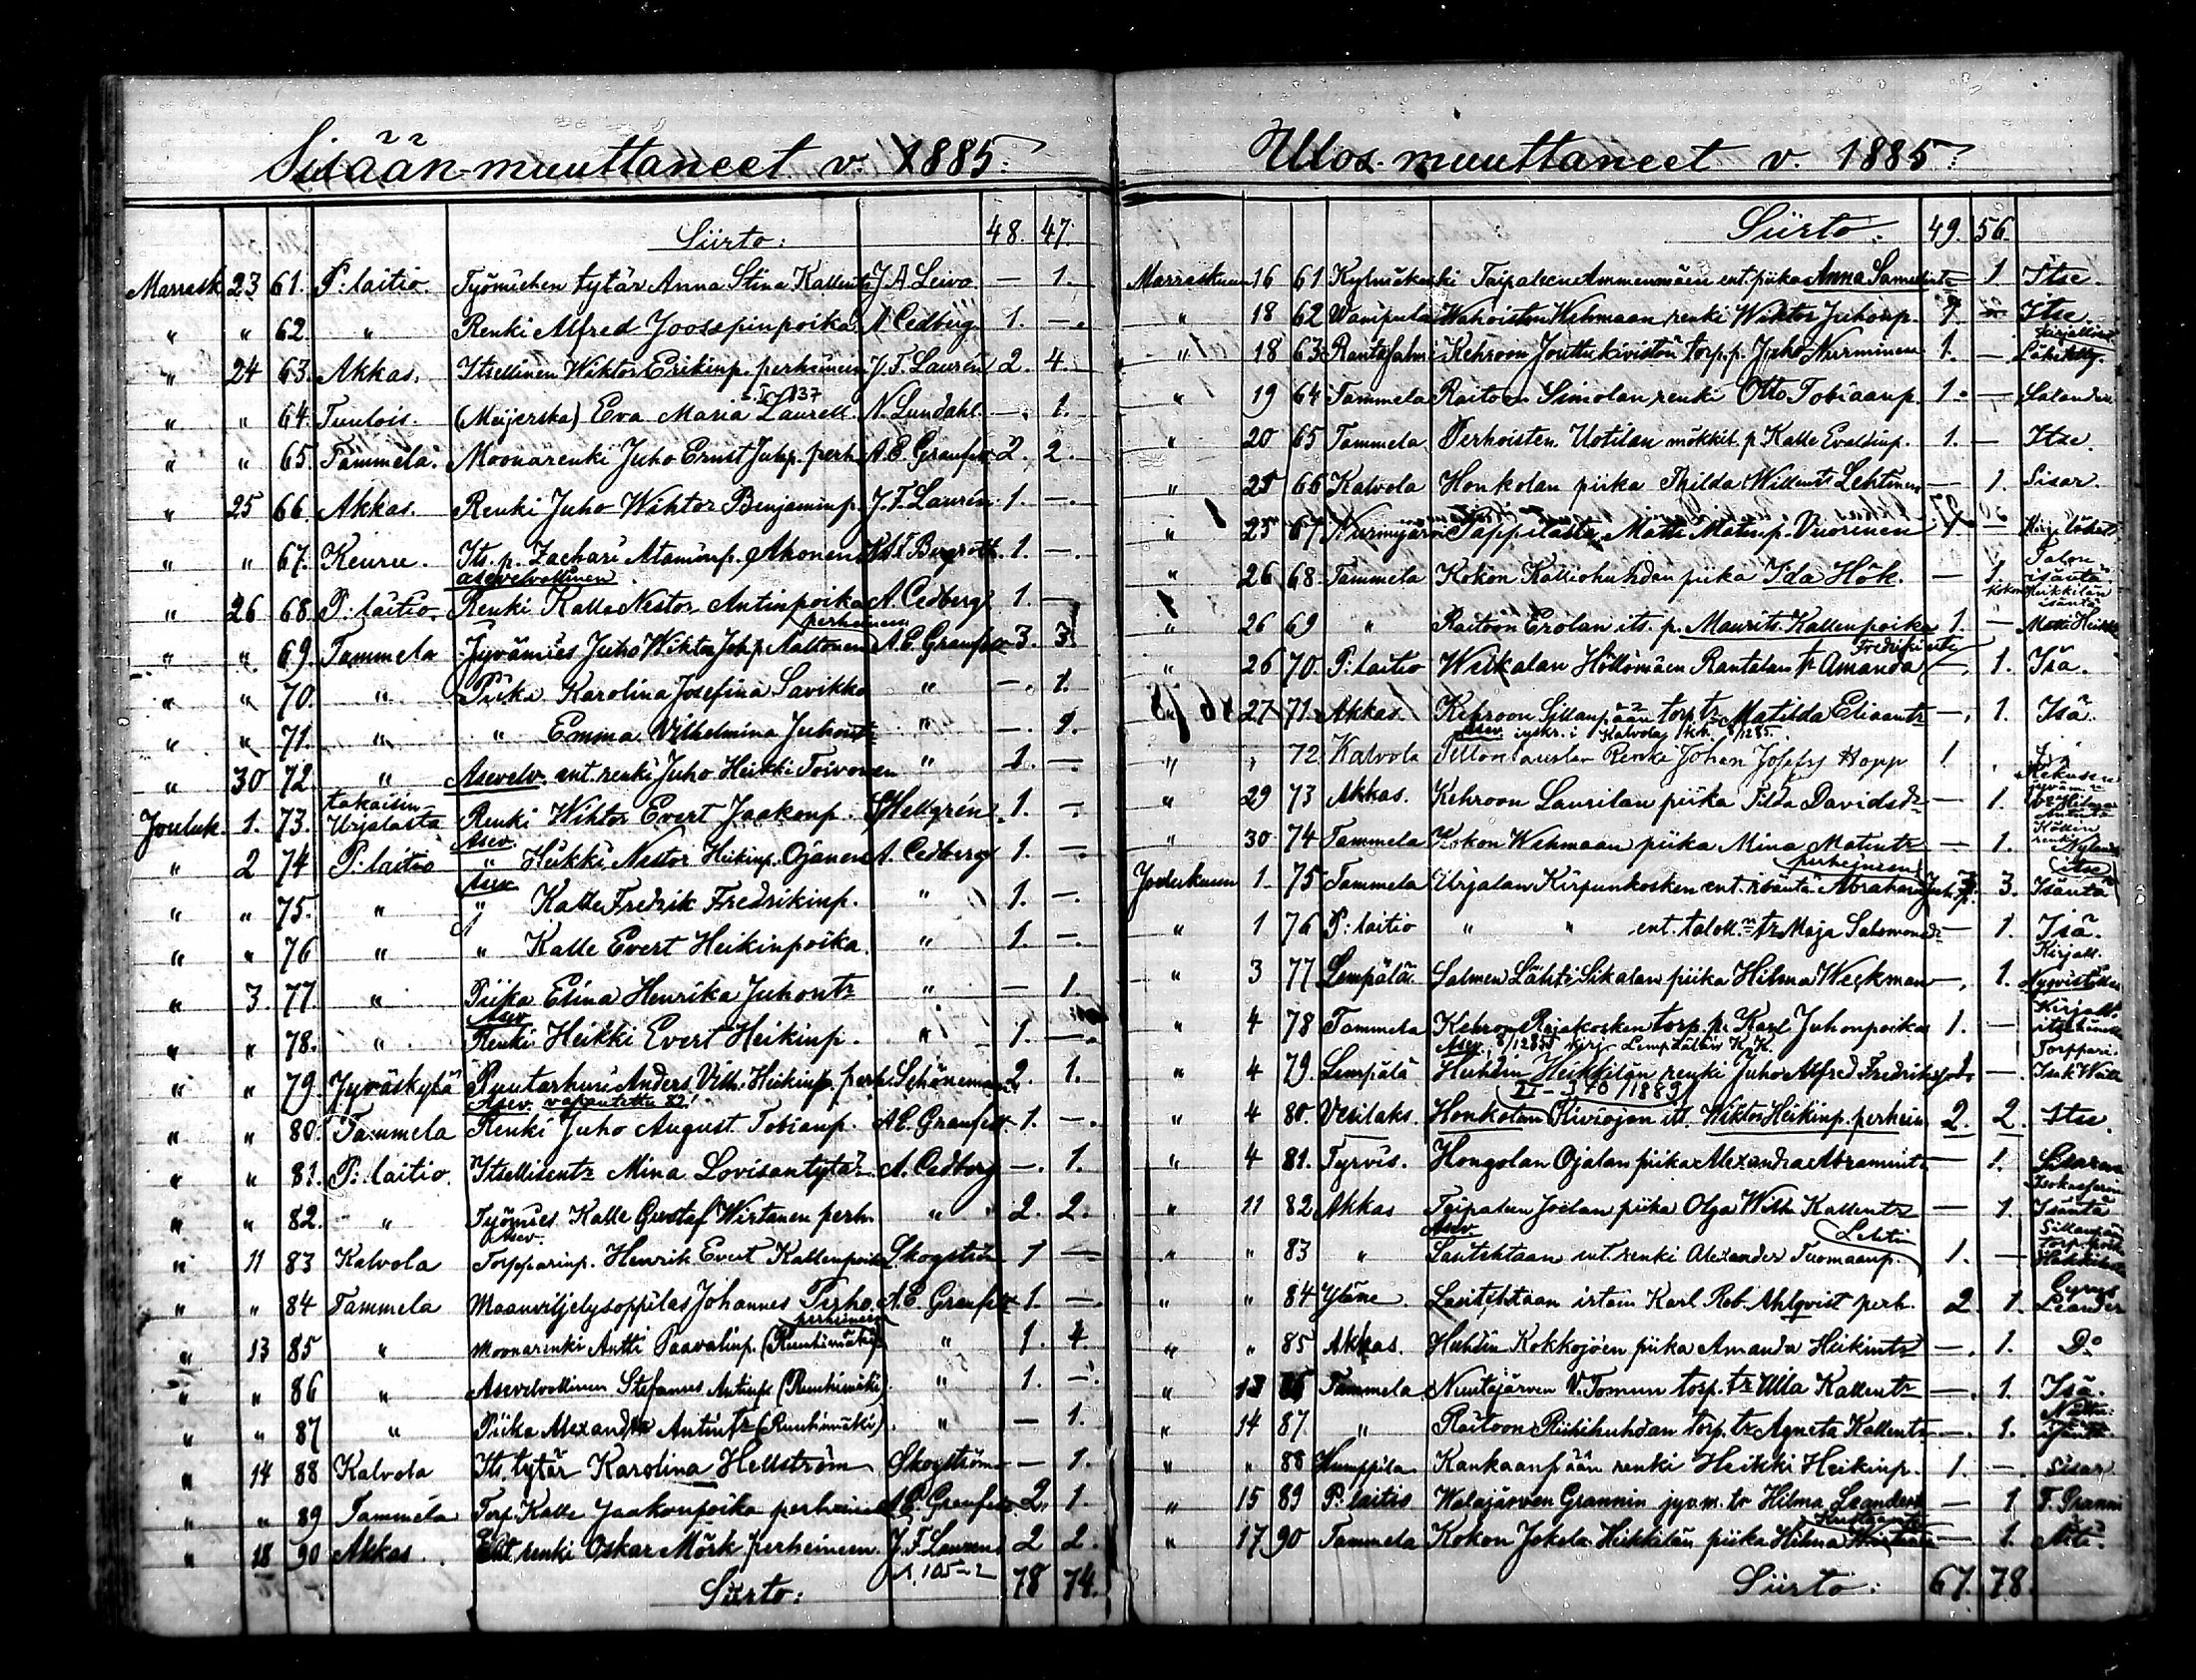 Sisään-muuttaneet v. 1885.
Siirto: 48. 47.
Marrask 23 61. P: laitio. Työmiehen tytär Anna Stina Kallentr J. A. Leivo — 1.
" " 62. " Renki Alfred Joosepinpoika A Cedberg. 1. —.
" 24 63. Akkas. Itsellinen Wiktor Erikinp. perheineen J. F. Laurén 2. 4.
" " 64. Tuulois. (Meijerska) Eva Maria Laurell. N. Lundahl. — 1.
" " 65. Tammela. Moonarenki Juho Ernst Juhp. perh. A. E. Granfelt 2. 2.
" 25 66. Akkas. Renki Juho Wihtor Benjaminp. J. F. Laurén 1. —.
" " 67. Keuru. Its. p. Zachari Ataminp. Ahonen 1. —.
asevelvollinen
" 26 68. P: laitio. Renki Kalle Nestor Antinpoika A. Cedberg 1. —
perheineen
" " 69. Tammela Jyvämies Juho Wiktor Johp. Aaltonen A. E. Granfelt 3. 3.
" " 70. " Piika Karolina Josefina Savikko " —. 1.
" " 71. " " Emma Vilhelmina Juhontr " —. 1.
" 30 72. " Asevelv. ent. renki Juho Heikki Toivonen " 1. —.
takaisin
Jouluk. 1. 73. Urjalasta Renki Wihtor Evert Jaakonp. Hellgrén. 1. —
Asev.
" 2 74 P: laitio " Heikki Nestor Heikinp. Ojanen A. Cedberg 1. —.
Asev.
" " 75. " " Kalle Fredrik Fredrikinp. " 1. —.
" " 76 " " Kalle Evert Heikinpoika. " 1. —.
" 3. 77. " Piika Elina Henrika Juhontr " — 1.
Asev
" " 78. " Renki Heikki Evert Heikinp. " 1. —.
" " 79. Jyväskylä Puutarhuri Anders Vilh. Heikinp. perh. Schöneman 2. 1.
Asev. vapautettu 82.
" " 80. Tammela Renki Juho August Tobianp. A E. Granfelt 1. —.
" " 81. P: laitio. Itsellisentr Mina Lovisantytär A. Cedberg —. 1.
" " 82. " Työmies Kalle Gustaf Wirtanen perh. " 2. 2.
Asev.
" 11 83 Kalvola Torpparinp. Henrik Evert Kallenpoika Skogström 1 —
" " 84 Tammela Maanviljelysoppilas Johannes Perho. A. E. Granfelt 1. —.
perheineen
" 13 85 " Moonarenki Antti Paavalinp. (Ruuhimäki) " 1. 4.
" " 86 " Asevelvollinen Stefanus Antinp. (Ruuhimäki) " 1. —.
" " 87 " Piika Alexandra Antintr (Ruuhimäki). " — 1.
" 14 88 Kalvola Its. tytär Karolina Hellström Skogström — 1.
" " 89 Tammela Torp. Kalle Jaakonpoika perheineen A. E. Granfelt 2. 1.
" 18 90 Akkas. Ent. renki Oskar Mörk perheineen. J. F. Lauren 2 2.
Siirto: 78 74.
Ulos-muuttaneet v. 1885.
Siirto. 49. 56.
Marraskuun 16 61 Taipaleen Ammenmäen ent. piika Anna Samelintr — 1 Itse.
" 18 62 Wampula Wahoisten Wehmaan renki Wiktor Juhonp. Itse
" 18 63 Rantasalmi Kehroon Jouttukiviston torp. p. Juho Nurminen 1. —
" 19 64 Tammela Raitoon Simolan renki Otto Tobiaanp. 1. — Salander
" 20 65 Tammela Perhoisten Uotilan mökkil. p. Kalle Evaldinp. 1. — Itse.
" 25 66 Kalvola Honkolan piika Thilda Willentr Lehtinen — 1. Sisar.
" 25 67 Nurmijärvi Pappilasta Matti Matinp. Vuorinen 1 —
" 26 68. Tammela Kokon Kalliohuhdan piika Ida Hök. — 1. Talon isäntä.
" 26 69 " Raitoon Erolan its. p. Maurits Kallenpoika 1. —
Fredrikintr
" 26 70. P: laitio Weikalan Höllömäen Rantalan tr Amanda —. 1. Isä.
27 71. Akkas. Kehroon Sillanpään torp. tr Matilda Eliaantr —. 1. Isä.
" " 72 Kalvola Renki Johan Josefsj Hopp 1
" 29 73 Akkas. Kehroon Laurilan piika Tilda Davidsdr — 1.
" 30 74 Tammela Kokon Wehmaan piika Mina Matintr — 1.
perheineen
Joulukuun 1. 75 Tammela Urjalan Kirpunkosken ent. isäntä Abraham Juh.p. 3. Isäntä
" 1 76 P: laitio " " ent. taloll. tr Maja Salomonsdr — 1. Isä.
" 3 77 Lempälä Salmen Lähti Sikalan piika Hilma Weckman —. 1.
" 4 78 Tammela Kehroon Rajakosken torp. p. Karl Juhonpoika 1. —
" 4 79. Lempälä Huhdin Heikkilän renki Juho Alfred Fredrikssp. — Torppari
" 4 80. Vesilaks. Honkolan Kiviojan its. Wiktor Heikinp. perhein. 2. 2. Itse.
" 4 81. Tyrvis. Hongolan Ojalan piika Alexandra Abramintr 1.
" 11 82 Akkas Taipaleen Joelan piika Olga Wilh. Kallentr — 1. Isäntä
Asev. Lehti
" " 83 " Lasitehtaan ent. renki Alexander Tuomaanp. 1. —
" " 84 Yläne. Lasitehtaan Karl Rob. Ahlqvist perh. 2. 1. Leander
" " 85 Akkas. Huhdin Kokkojoen piika Amanda Heikintr —. 1. Do
" 13 86 Tammela Nuutajärven V. Tomun torp. tr Ulla Kallentr —. 1. Isä.
" 14 87. " Raitoon Riihihuhdan torp. tr Agneta Kallentr —. 1.
" " 88 Humppila Kankaanpään renki Heikki Heikinp. 1. —. Sisar
" 15 89 P: laitio Walajärven Grannin jyv.m. tr Hilma Leandersdr — 1 F. Granni
" 17 90 Tammela Kokon Jokela Heikkilän piika Hilma — 1. Äiti.
Siirto: 67. 78.